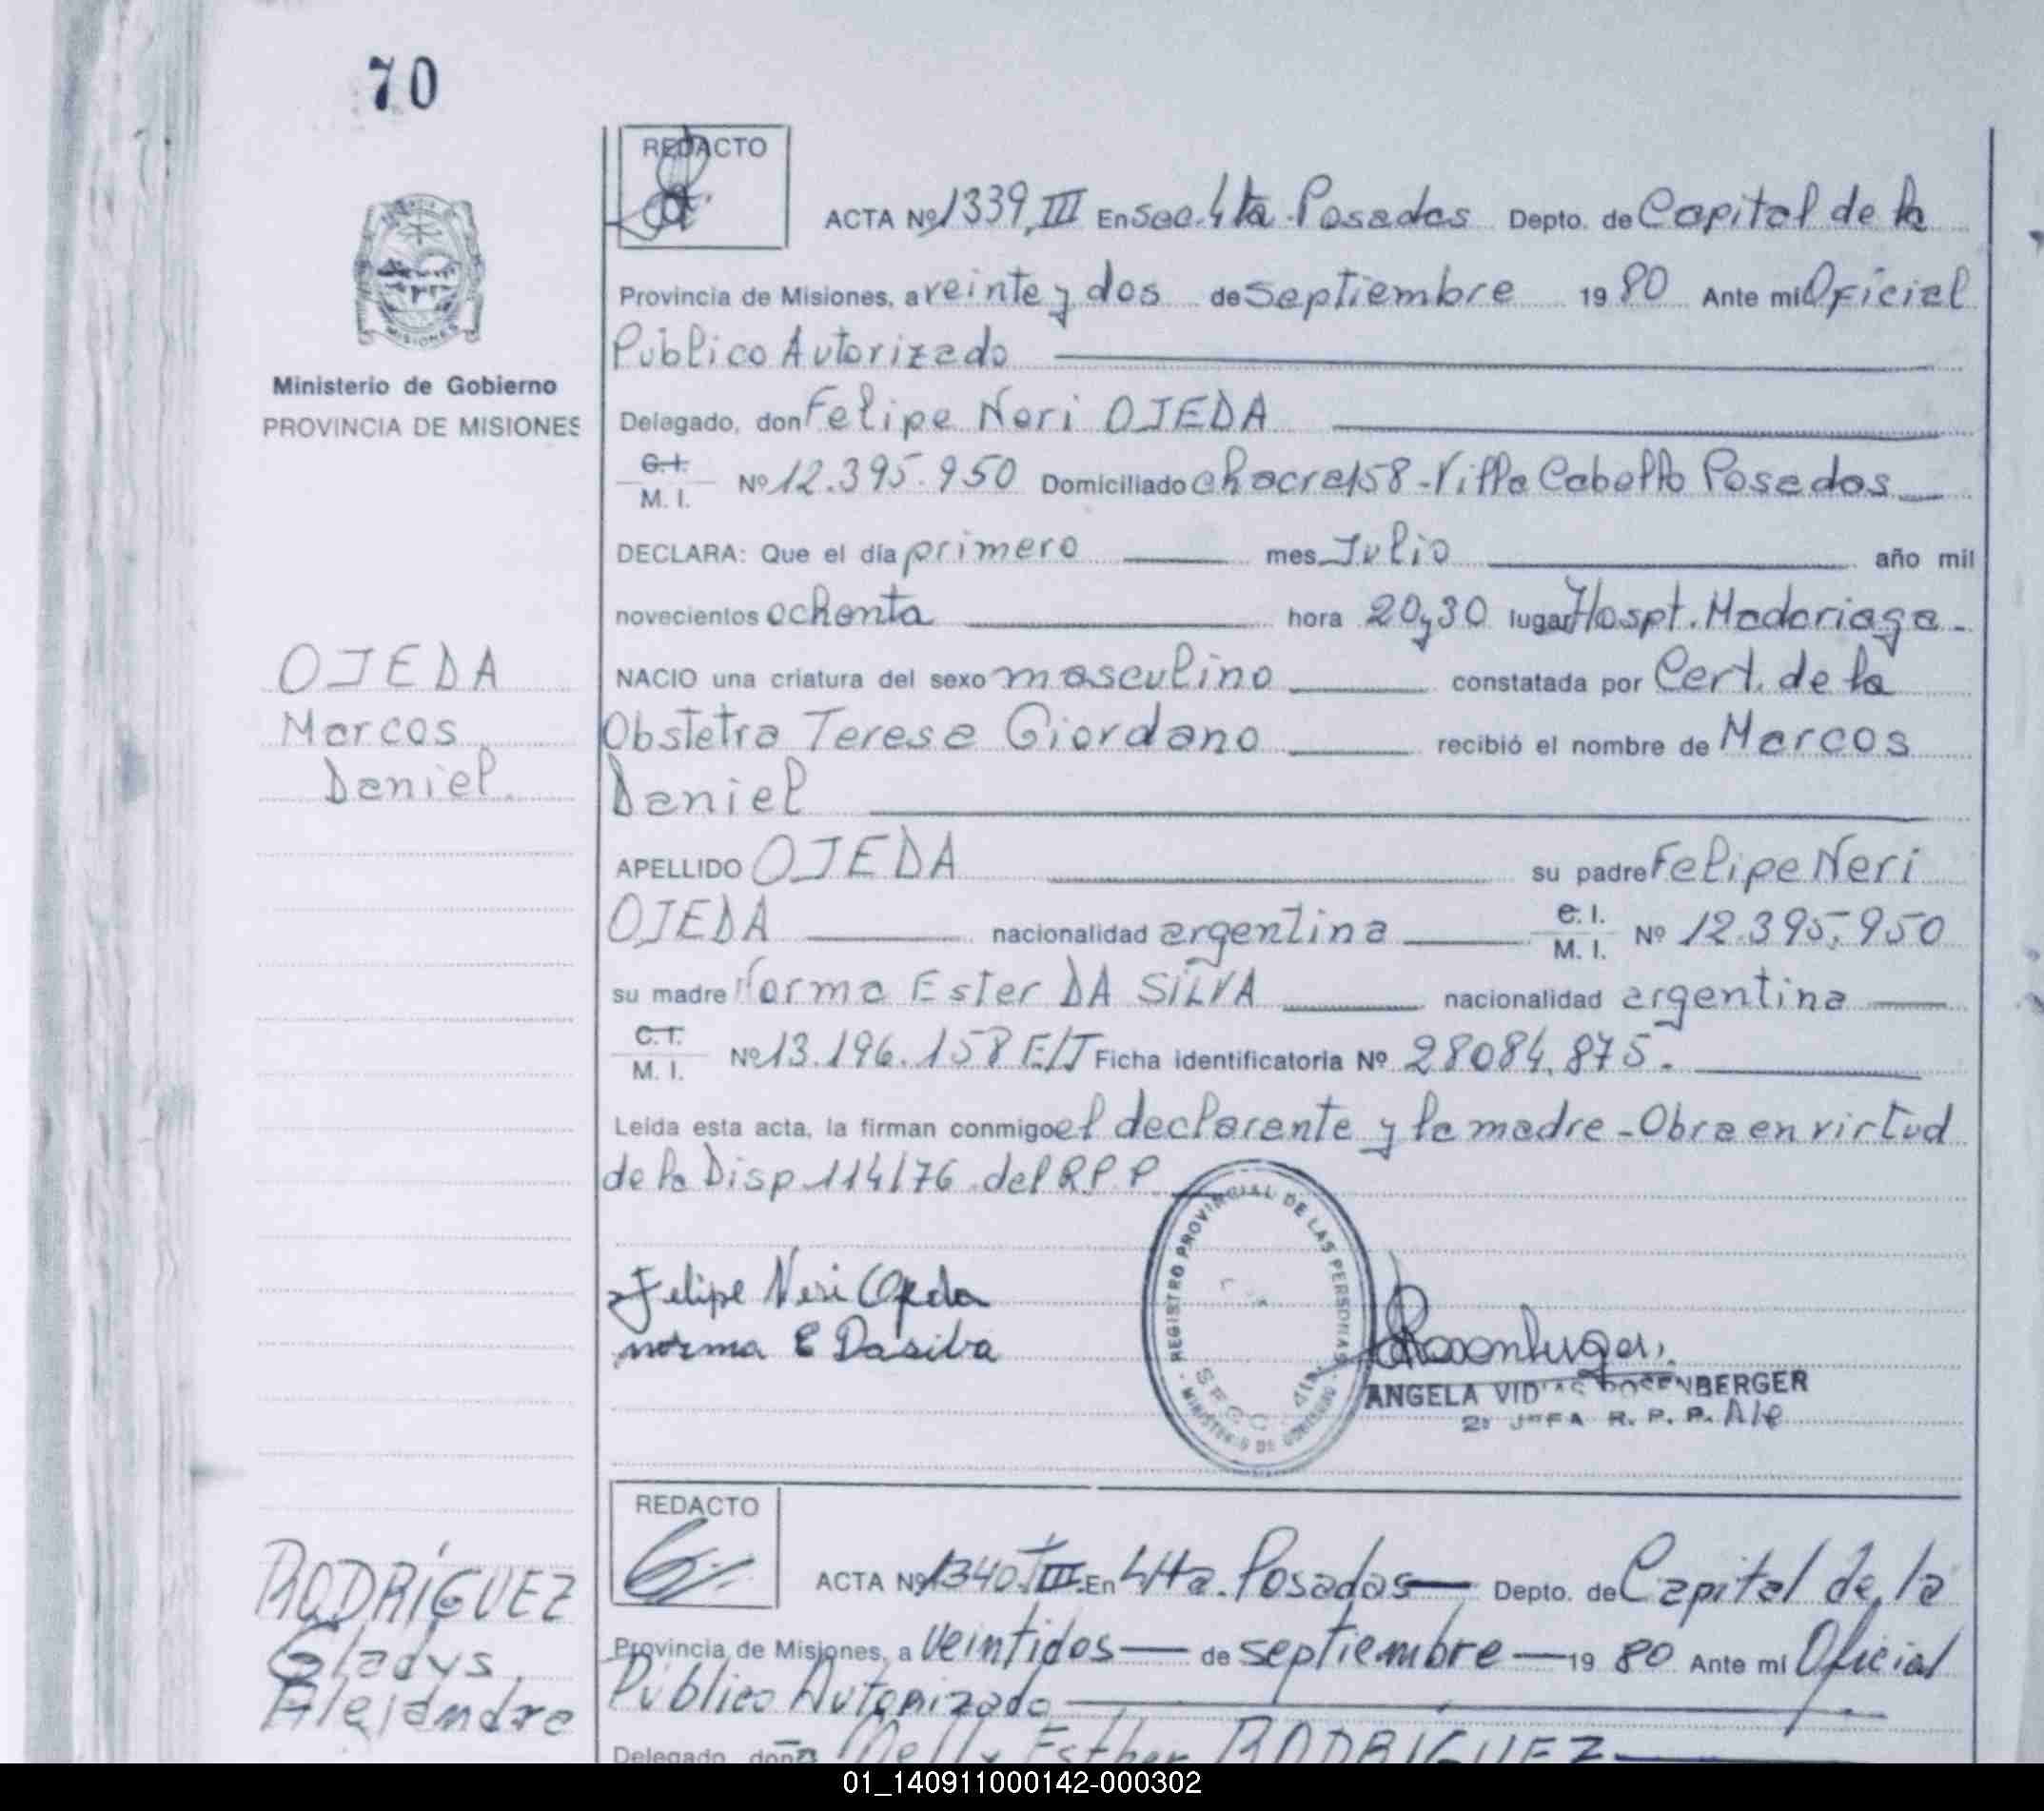 70
REDACTO
ACTA Nº 1339, III En Sec. 4ta Posadas Depto. de Capital de la
Provincia de Misiones, a veinte y dos de Septiembre 19 80 Ante mi Oficial
Público Autorizado
Ministerio de Gobierno
PROVINCIA DE MISIONES
Delegado, don Felipe Neri OJEDA
C.I. M. I. Nº 12.395.950 Domiciliado chacra 158 - Villa Cabello Posadas
DECLARA: Que el día primero mes Julio año mil
novecientos ochenta hora 20,30 lugar Hospt. Madariaga -
OJEDA
Marcos
Daniel.
NACIO una criatura del sexo masculino constatada por Cert. de la
Obstetra Teresa Giordano recibió el nombre de Marcos
Daniel
APELLIDO OJEDA su padre Felipe Neri
OJEDA nacionalidad argentina C.I. M. I. Nº 12.395.950
su madre Norma Ester DA SILVA nacionalidad argentina
C.I. M. I. Nº 13.196.158 E/T Ficha identificatoria Nº 28084.875.
Leída esta acta, la firman conmigo el declarante y la madre - Obra en virtud
de la Disp 114/76 del R.P.P.
REGISTRO PROVINCIAL DE LAS PERSONAS
- MINISTERIO DE GOBIERNO -
SECC. 4ta
Felipe Neri Ojeda
norma E Dasilva
ANGELA VIDAS ROSENBERGER
2ª JEFA R. P. P. A/C
REDACTO
ACTA Nº 1340 T III En 4ta. Posadas Depto. de Capital de la
Provincia de Misiones, a veintidos de septiembre 19 80 Ante mi Oficial
Público Autorizado
RODRÍGUEZ
Gladys
Alejandra
Delegado, doña Nelly Esther RODRIGUEZ
01_140911000142-000302